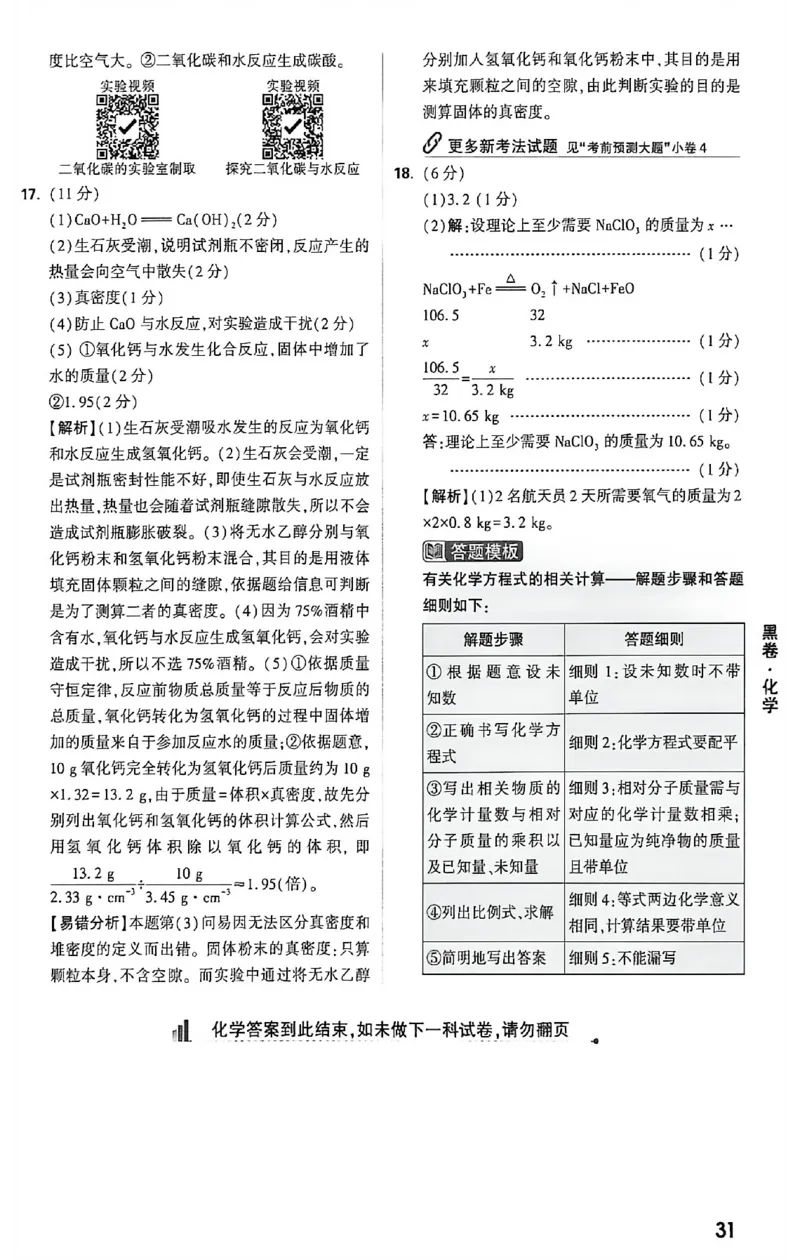 度比空气大。②二氧化碳和水反应生成碳酸。
实验视频 实验视频
二氧化碳的实验室制取 探究二氧化碳与水反应
17. (11分)
(1)CaO+H₂O══Ca(OH)₂(2分)
(2)生石灰受潮,说明试剂瓶不密闭,反应产生的
热量会向空气中散失(2分)
(3)真密度(1分)
(4)防止CaO与水反应,对实验造成干扰(2分)
(5) ①氧化钙与水发生化合反应,固体中增加了
水的质量(2分)
②1.95(2分)
【解析】(1)生石灰受潮吸水发生的反应为氧化钙
和水反应生成氢氧化钙。(2)生石灰会受潮,一定
是试剂瓶密封性能不好,即使生石灰与水反应放
出热量,热量也会随着试剂瓶缝隙散失,所以不会
造成试剂瓶膨胀破裂。(3)将无水乙醇分别与氧
化钙粉末和氢氧化钙粉末混合,其目的是用液体
填充固体颗粒之间的缝隙,依据题给信息可判断
是为了测算二者的真密度。(4)因为75%酒精中
含有水,氧化钙与水反应生成氢氧化钙,会对实验
造成干扰,所以不选75%酒精。(5)①依据质量
守恒定律,反应前物质总质量等于反应后物质的
总质量,氧化钙转化为氢氧化钙的过程中固体增
加的质量来自于参加反应水的质量;②依据题意,
10 g氧化钙完全转化为氢氧化钙后质量约为10 g
×1.32=13.2 g,由于质量=体积×真密度,故先分
别列出氧化钙和氢氧化钙的体积计算公式,然后
用氢氧化钙体积除以氧化钙的体积,即
13.2 g/2.33 g·cm⁻³÷10 g/3.45 g·cm⁻³≈1.95(倍)。
【易错分析】本题第(3)问易因无法区分真密度和
堆密度的定义而出错。固体粉末的真密度:只算
颗粒本身,不含空隙。而实验中通过将无水乙醇
分别加入氢氧化钙和氧化钙粉末中,其目的是用
来填充颗粒之间的空隙,由此判断实验的目的是
测算固体的真密度。
更多新考法试题 见“考前预测大题”小卷4
18. (6分)
(1)3.2 (1分)
(2)解:设理论上至少需要NaClO₃的质量为x …
…………………………………… (1分)
NaClO₃+Fe══△══O₂↑+NaCl+FeO
106.5 32
x 3.2 kg ……………… (1分)
106.5/32=x/3.2 kg ………………………… (1分)
x=10.65 kg ………………………… (1分)
答:理论上至少需要NaClO₃的质量为10.65 kg。
…………………………………… (1分)
【解析】(1)2名航天员2天所需要氧气的质量为2
×2×0.8 kg=3.2 kg。
答题模板
有关化学方程式的相关计算——解题步骤和答题
细则如下:
解题步骤 答题细则
①根据题意设未知数 细则1:设未知数时不带单位
②正确书写化学方程式 细则2:化学方程式要配平
③写出相关物质的化学计量数与相对分子质量的乘积以及已知量、未知量 细则3:相对分子质量需与对应的化学计量数相乘;已知量应为纯净物的质量且带单位
④列出比例式、求解 细则4:等式两边化学意义相同,计算结果要带单位
⑤简明地写出答案 细则5:不能漏写
黑卷·化学
化学答案到此结束,如未做下一科试卷,请勿翻页
31